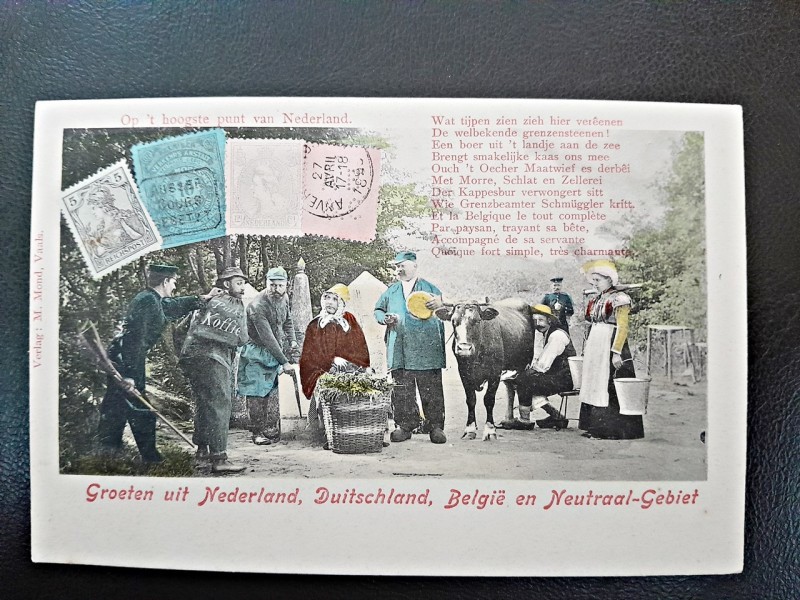 Op 't hoogste punt van Nederland.
Wat tijpen zien zieh hier verêenen
De welbekende grenzensteenen!
Een boer uit 't landje aan de zee
Brengt smakelijke kaas ons mee
Ouch 't Oecher Maatwief es derbêi
Met Morre, Schlat en Zellerei
Der Kappesbur verwongert sitt
Wie Grenzbeamter Schmüggler kritt.
Et la Belgique le tout complète
Par paysan, trayant sa bête,
Accompagné de sa servante
Quoique fort simple, très charmante.
5 5
AUSSER
COURS
GESETZT
27
AVRIL
17-18
ANVERS
Koffie
Verlag: M. Mond, Vaals.
Groeten uit Nederland, Duitschland, België en Neutraal-Gebiet